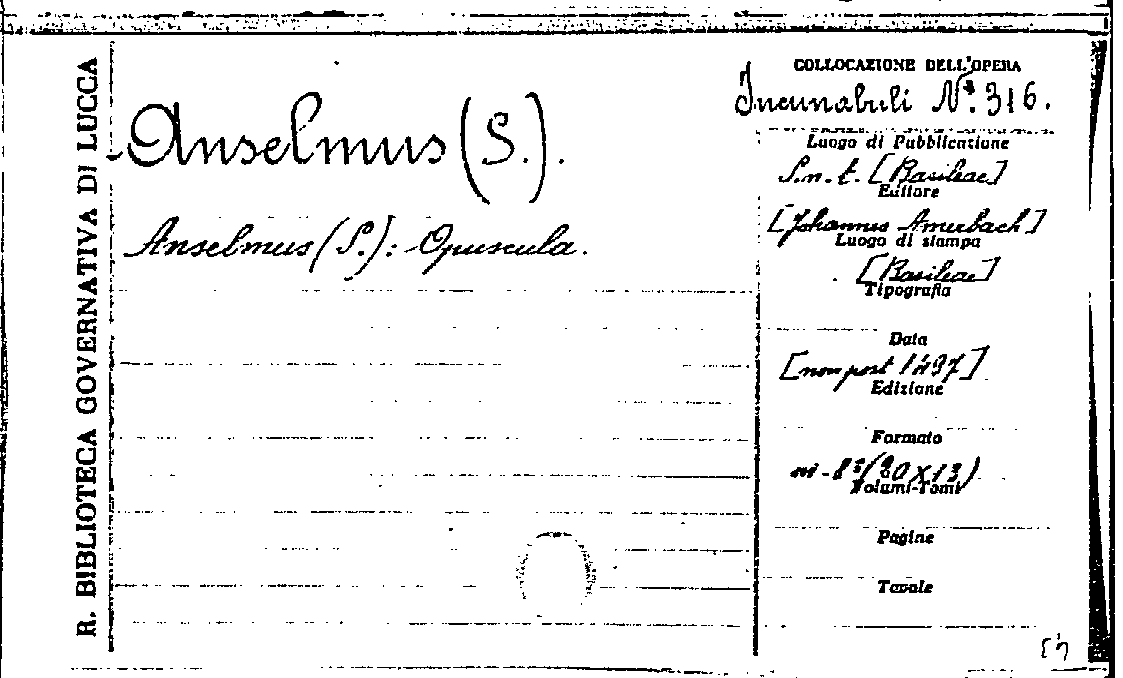 R. BIBLIOTECA GOVERNATIVA DI LUCCA
Anselmus (S.).
Anselmus (S.): Opuscula.
COLLOCAZIONE DELL'OPERA
Incunabuli Nº. 316.
Luogo di Pubblicazione
S. n. t. [Basileae]
Editore
[Johannes Amerbach]
Luogo di stampa
[Basileae]
Tipografia
Data
[non post 1497]
Edizione
Formato
in-8º (20 X 13)
Volumi-Tomi
Pagine
Tavole